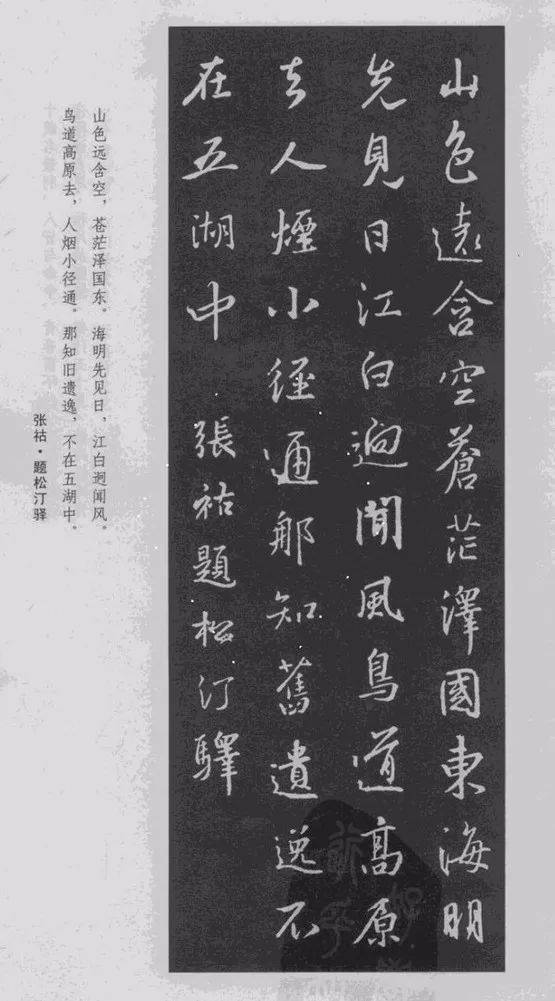 山色遠含空蒼茫澤國東海明
先見日江白迥聞風鳥道高原
去人煙小徑通那知舊遺逸不
在五湖中 張祜題松汀驛
山色远含空，苍茫泽国东。海明先见日，江白迥闻风。
鸟道高原去，人烟小径通。那知旧遗逸，不在五湖中。
张祜·题松汀驿